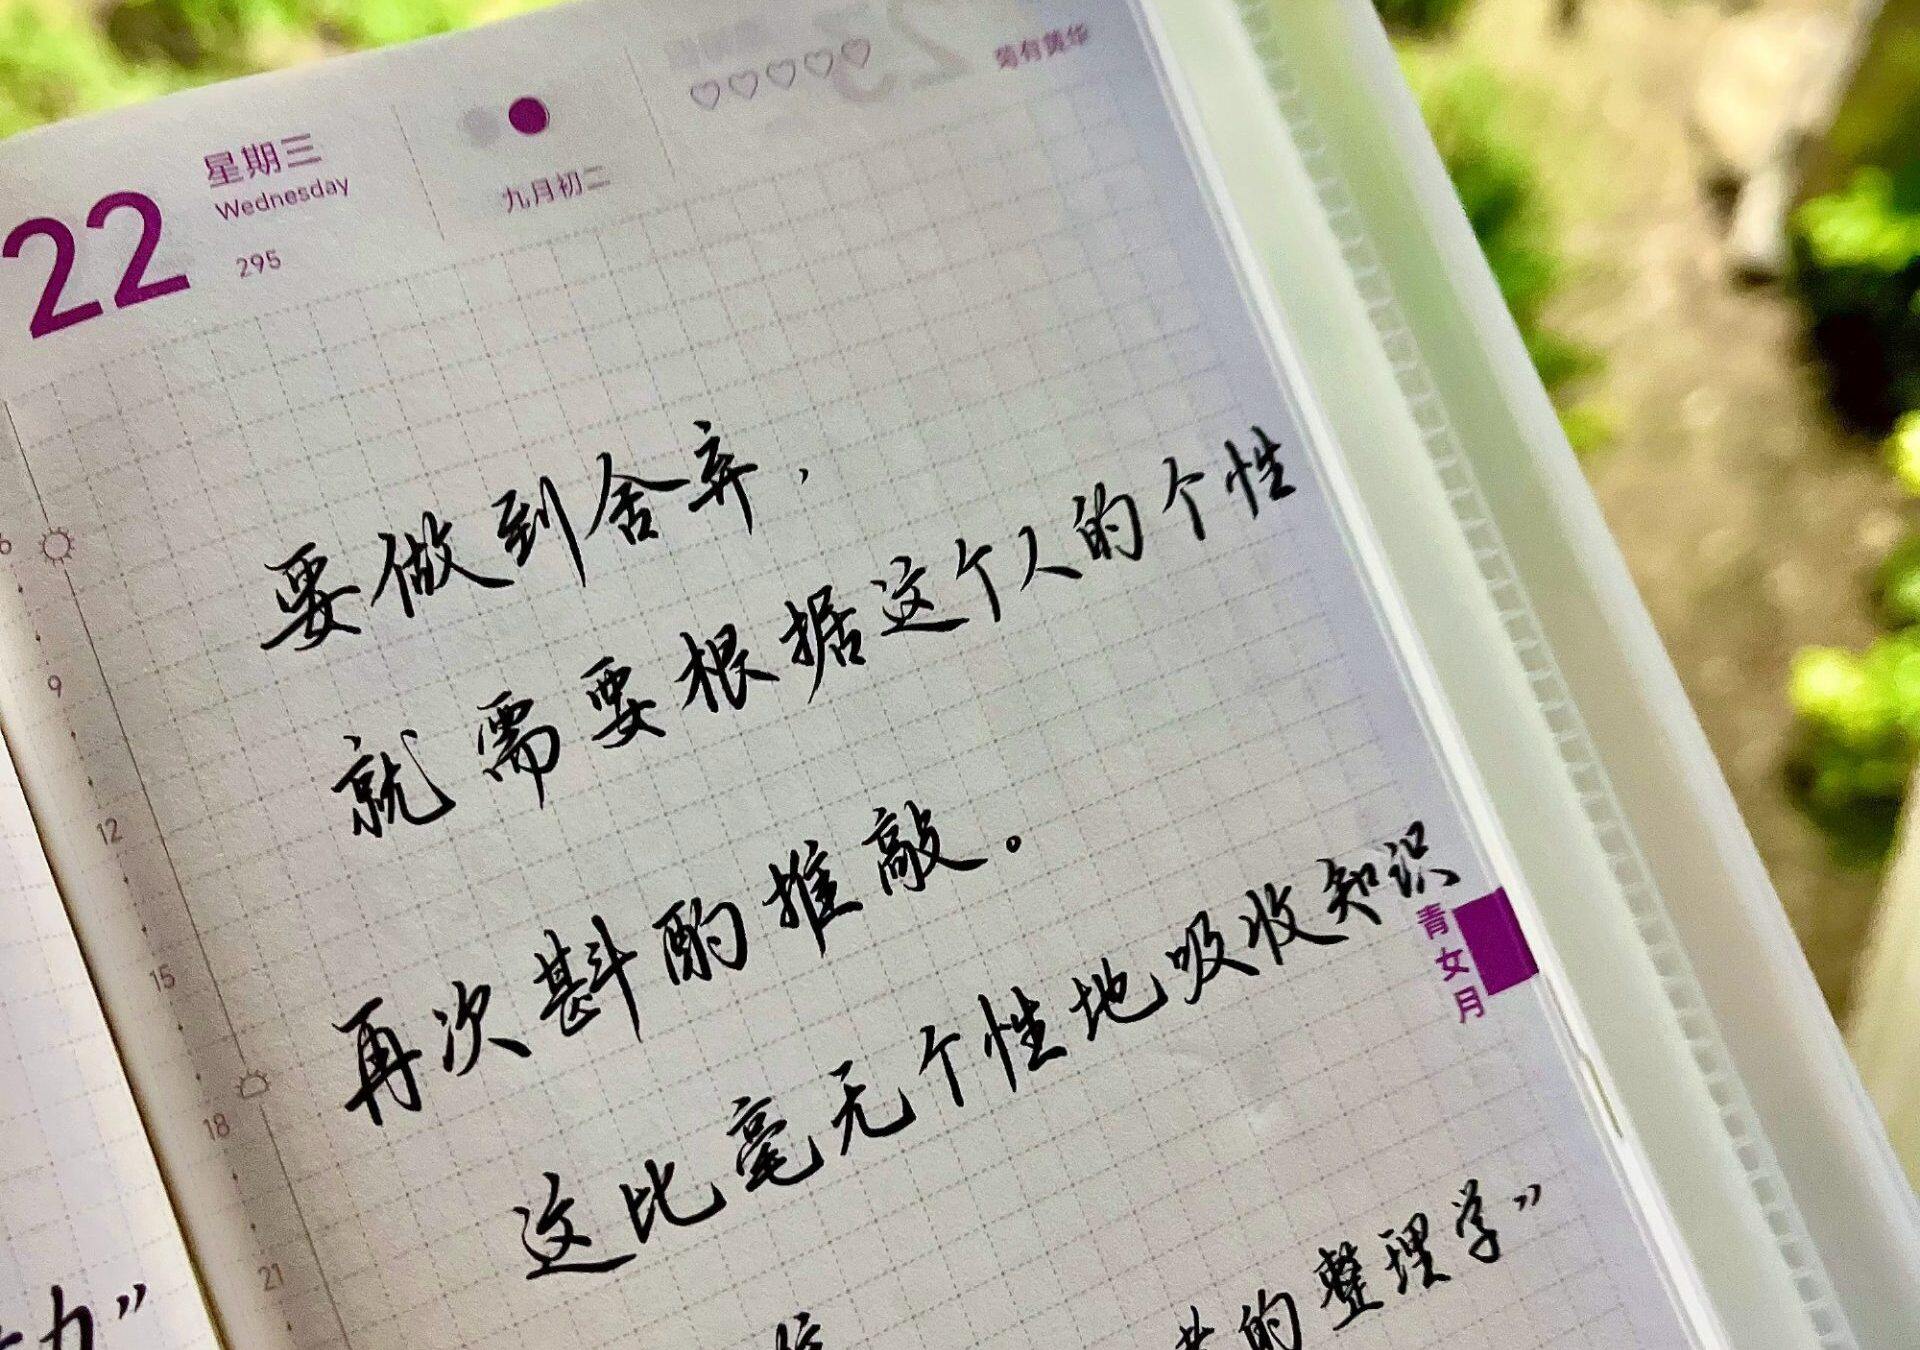 22
星期三
Wednesday
295
九月初二
菊有黄华
要做到舍弃，
就需要根据这个人的个性
再次斟酌推敲。
这比毫无个性地吸收知识
的整理学”
青女月
9
12
15
18
21
力”